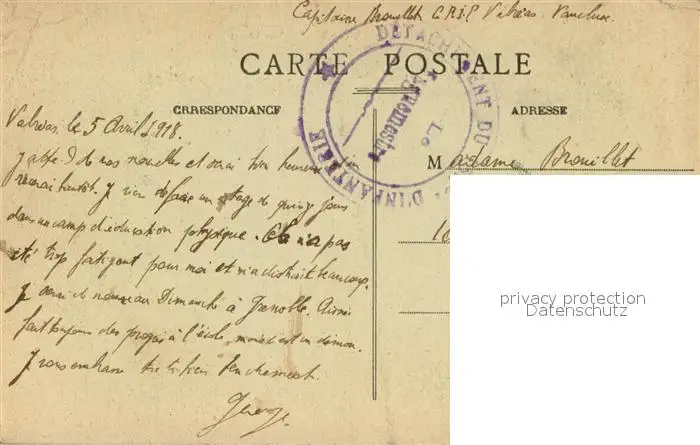 Capitaine Brouillet C.R.I.P Valréas. Vaucluse
CARTE POSTALE
DÉTACHEMENT DU
D'INFANTERIE
Le
Vaguemestre
CRRESPONDANCE
ADRESSE
Valréas le 5 Avril 1918.
de vos nouvelles et serai bien heureux
bientôt. Je viens de faire un stage de quinze jours
dans un camp d'éducation physique. Cela n'a pas
été trop fatigant pour moi et m'a distrait beaucoup.
Je serai de nouveau Dimanche à Grenoble. Aimé
fait toujours des progrès à l'école, mais c'est un démon.
Je vous embrasse très très tendrement.
George
Madame Brouillet
10
privacy protection
Datenschutz